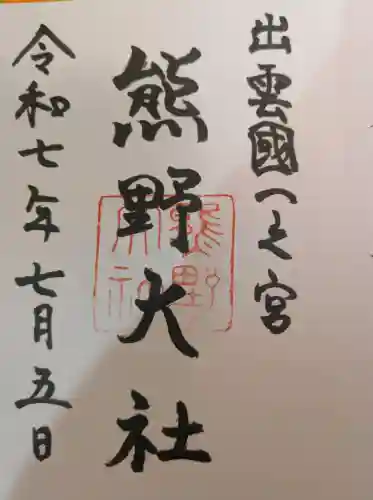 出雲國一之宮
熊野大社
令和七年七月五日
熊野大社